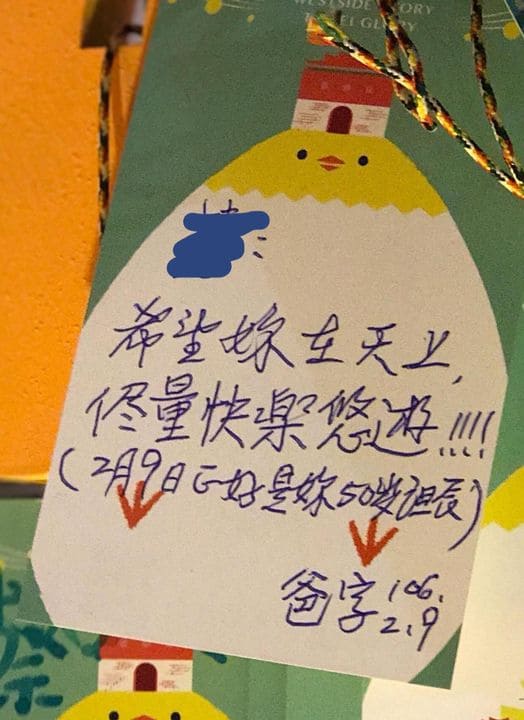 WESTSIDE GLORY
TAIPEI GLORY
希望妳在天上,
儘量快樂悠遊!!!!
(2月9日正好是妳50歲誕辰)
爸字 106.
2.9